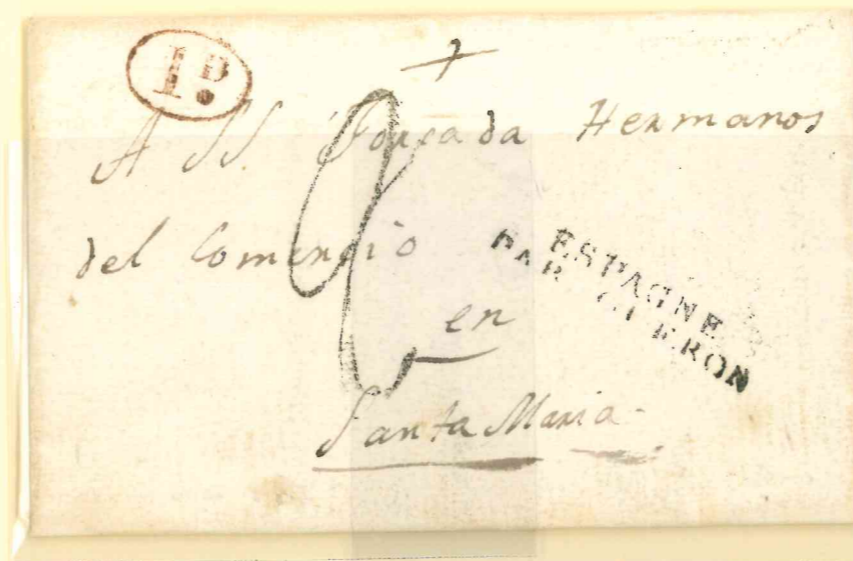 1D.
A SS. Forcada Hermanos
del Comercio
ESPAGNE
PAR OLERON
en
Santa Maria